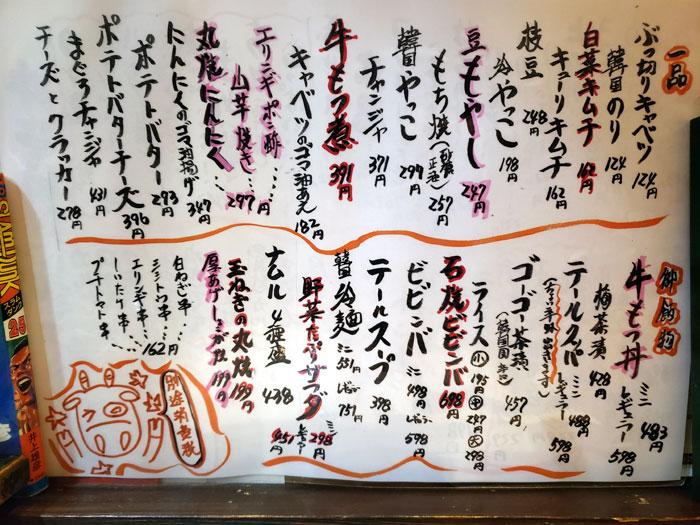 一品
ぶっ切りキャベツ 124円
韓国のり 124円
白菜キムチ 162円
キューリキムチ 162円
枝豆 248円
冷やっこ 198円
豆もやし 247円
もち焼 257円
韓国やっこ 299円
チャンジャ 371円
牛もつ煮 391円
キャベツのゴマ油あえ 182円
エリンギポン酢
山芋焼き 297円
丸焼にんにく
にんにくのゴマ油揚げ 347円
ポテトバター 293円
ポテトバターチーズ 396円
まぐろチャンジャ 431円
チーズとクラッカー 278円
御飯物
牛もつ丼 ミニ 483円 レギュラー 598円
梅茶漬 428円
テールクッパ ミニ 488円 レギュラー 598円
ゴーゴー茶漬 457円
ライス 小 195円 中 247円 大 298円
石焼ビビンバ 698円
ビビンバ ミニ 498円 レギュラー 598円
テールスープ 398円
韓国冷麺 ミニ 551円 レギュラー 757円
野菜たっぷりサラダ ミニ 298円 レギュラー 451円
ナムル4種盛 438円
玉ねぎの丸焼 199円
厚あげしょうが焼 199円
白ねぎ串
シシトウ串
エリンギ串
しいたけ串
プチトマト串 162円
別途消費税
スラムダンク
井上雄彦